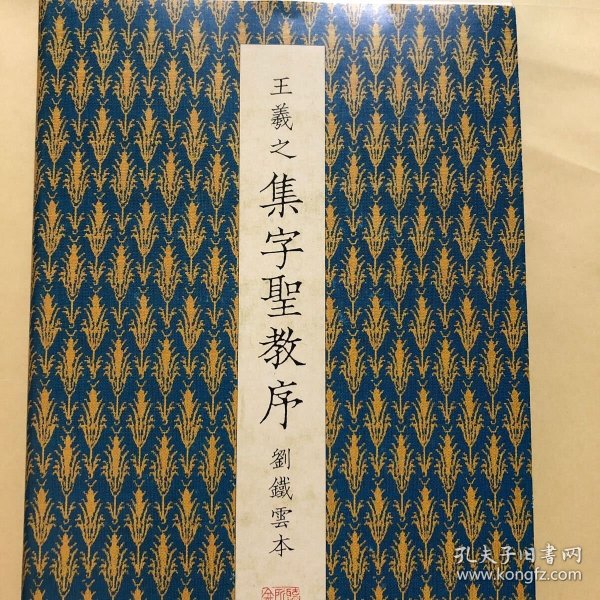 王羲之集字聖教序 劉鐵雲本
孔夫子旧書网
www.kongfz.com